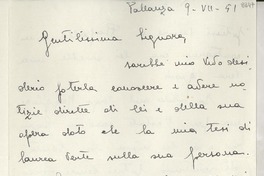 Pallanza 9-VII-51
Gentilissima Signora,
sarebbe mio vivo desi
derio poterla conoscere e avere no
tizie dirette di lei e della sua
opera dato che la mia tesi di
laurea verte sulla sua persona.